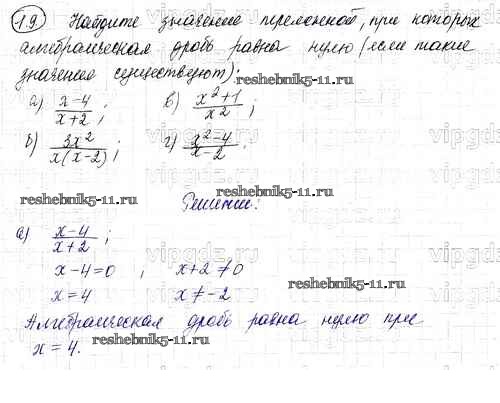 1.9 Найдите значение переменной, при которых
алгебраическая дробь равна нулю (если такие
значения существуют):
reshebnik5-11.ru
а) x-4/x+2 ; в) x²+1/x² ;
б) 3x²/x(x-2) ; г) x²-4/x-2 .
reshebnik5-11.ru
reshebnik5-11.ru
Решение:
а) x-4/x+2 ;
x-4=0 ; x+2≠0
reshebnik5-11.ru
x=4 x≠-2
Алгебраическая дробь равна нулю при
x=4.
reshebnik5-11.ru